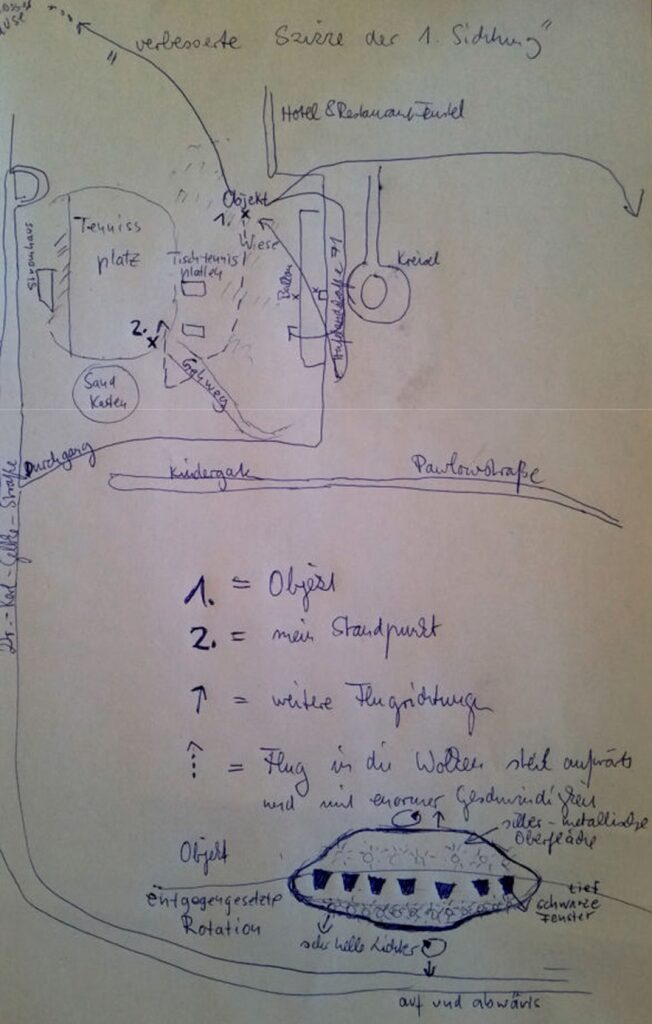 "verbesserte Skizze der 1. Sichtung"
Hotel & Restaurant
Objekt
1.
Wiese
Tenniss
platz
Tischtennis
platten
Stromhaus
Kreisel
2.
Gehweg
Sand
Kasten
Durchgang
Kindergarten
Pawlowstraße
1. = Objekt
2. = mein Standpunkt
↑ = weitere Flugrichtungen
= Flug in die Wolken steil aufwärts
und mit enormer Geschwindigkeit
silber-metallische
Oberfläche
Objekt
entgegengesetzte
Rotation
tief
schwarze
Fenster
sehr helle Lichter
auf und abwärts